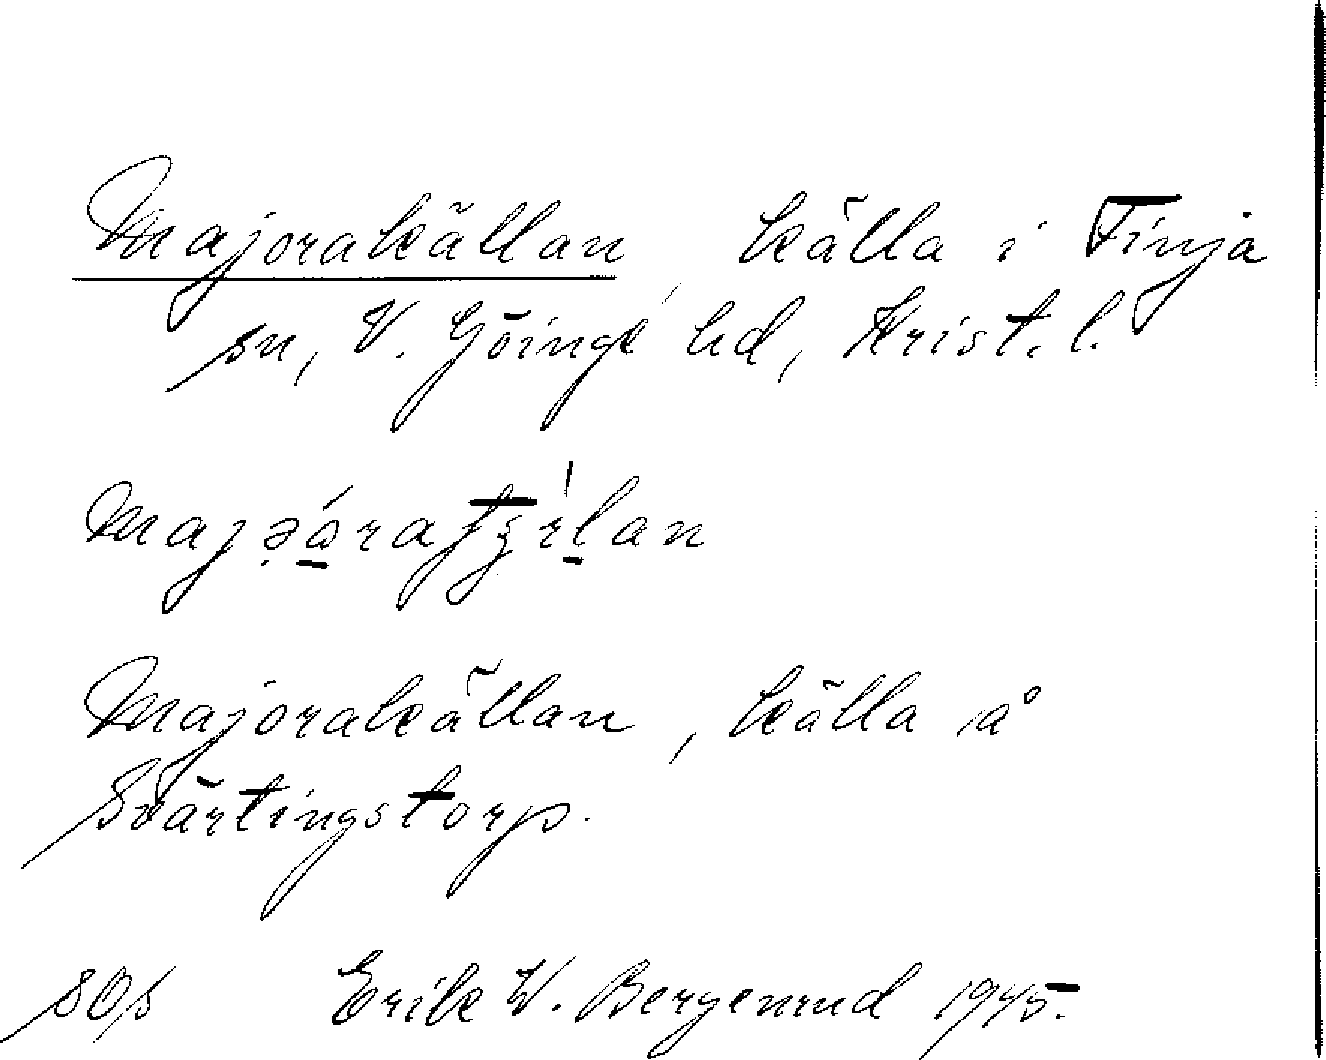 Majorakällan, källa i Finja
sn, V. Göinge hd, Krist. l.
Majorakällan, källa å
Svärtingstorp.
Erik W. Bergenrud 1945.